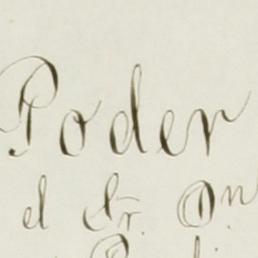 Poder
el Sr. Dn